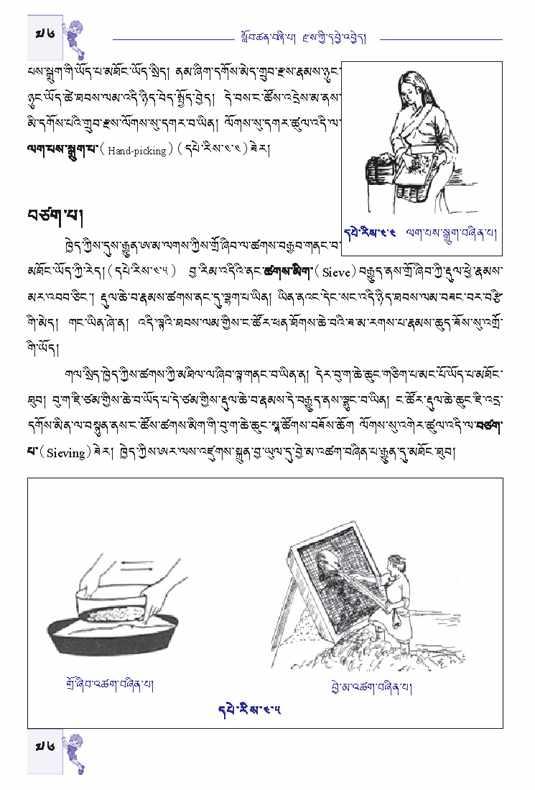 ༥༦
སློབ་ཚན་བཞི་པ། རྫས་ཀྱི་དབྱེ་འབྱེད།
པས་སྒྲུག་གི་ཡོད་པ་མཐོང་ཡོད་སྲིད། ནམ་ཞིག་དགོས་མེད་གྲུབ་རྫས་རྣམས་ཉུང་
ཉུང་ཡོད་ཚེ་ཐབས་ལམ་འདི་ཉིད་བེད་སྤྱོད་བྱེད། དེ་བས་ང་ཚོས་འདྲེས་མ་ནས་
མི་དགོས་པའི་གྲུབ་རྫས་ལོགས་སུ་དགར་བ་ཡིན། ལོགས་སུ་དགར་ཚུལ་འདི་ལ་
ལག་པས་སྒྲུག་པ་ (Hand-picking) (དཔེ་རིས་ ༤.༤) ཟེར།
དཔེ་རིས་ ༤.༤ ལག་པས་སྒྲུག་བཞིན་པ།
བཙག་པ།
ཁྱེད་ཀྱིས་དུས་རྒྱུན་ཨ་མ་ལགས་ཀྱིས་གྲོ་ཞིབ་ལ་ཚགས་བརྒྱབ་གནང་བ་
མཐོང་ཡོད་ཀྱི་རེད། (དཔེ་རིས་ ༤.༥) བྱ་རིམ་འདིའི་ནང་ཚགས་མིག་ (Sieve) བརྒྱུད་ནས་གྲོ་ཞིབ་ཀྱི་རྡུལ་ཕྲ་རྣམས་
མར་འབབ་ཅིང་། རྡུལ་ཆེ་བ་རྣམས་ཚགས་ནང་དུ་ལྷག་པ་ཡིན། ཡིན་ནའང་དེང་སང་འདི་ཉིད་ཐབས་ལམ་བཟང་བར་བརྩི་
གི་མེད། གང་ཡིན་ཞེ་ན། འདི་ལྟའི་ཐབས་ལམ་གྱིས་ང་ཚོར་ཕན་ཐོགས་ཆེ་བའི་ཟ་མ་རགས་པ་རྣམས་ཆུད་ཟོས་སུ་འགྲོ་
གི་ཡོད།
གལ་སྲིད་ཁྱེད་ཀྱིས་ཚགས་ཀྱི་མཐིལ་ལ་ཞིབ་ལྟ་གནང་བ་ཡིན་ན། དེར་བུ་ག་ཆེ་ཆུང་གཅིག་པ་མང་པོ་ཡོད་པ་མཐོང་
ཐུབ། བུ་ག་ཇི་ཙམ་གྱིས་ཆེ་བ་ཡོད་པ་དེ་ཙམ་གྱིས་རྡུལ་ཆེ་བ་རྣམས་དེ་བརྒྱུད་ནས་ལྷུང་བ་ཡིན། ང་ཚོར་རྡུལ་ཆེ་ཆུང་ཇི་འདྲ་
དགོས་མིན་ལ་བསྟུན་ནས་ང་ཚོས་ཚགས་མིག་གི་བུ་ག་ཆེ་ཆུང་སྣ་ཚོགས་བཟོས་ཆོག ལོགས་སུ་འགེར་ཚུལ་འདི་ལ་བཙག་
པ་ (Sieving) ཟེར། ཁྱེད་ཀྱིས་ཨར་ལས་འཛུགས་སྐྲུན་བྱ་ཡུལ་དུ་བྱེ་མ་འཚག་བཞིན་པ་རྒྱུན་དུ་མཐོང་ཐུབ།
གྲོ་ཞིབ་འཚག་བཞིན་པ།
བྱེ་མ་འཚག་བཞིན་པ།
དཔེ་རིས་ ༤.༥
༥༦